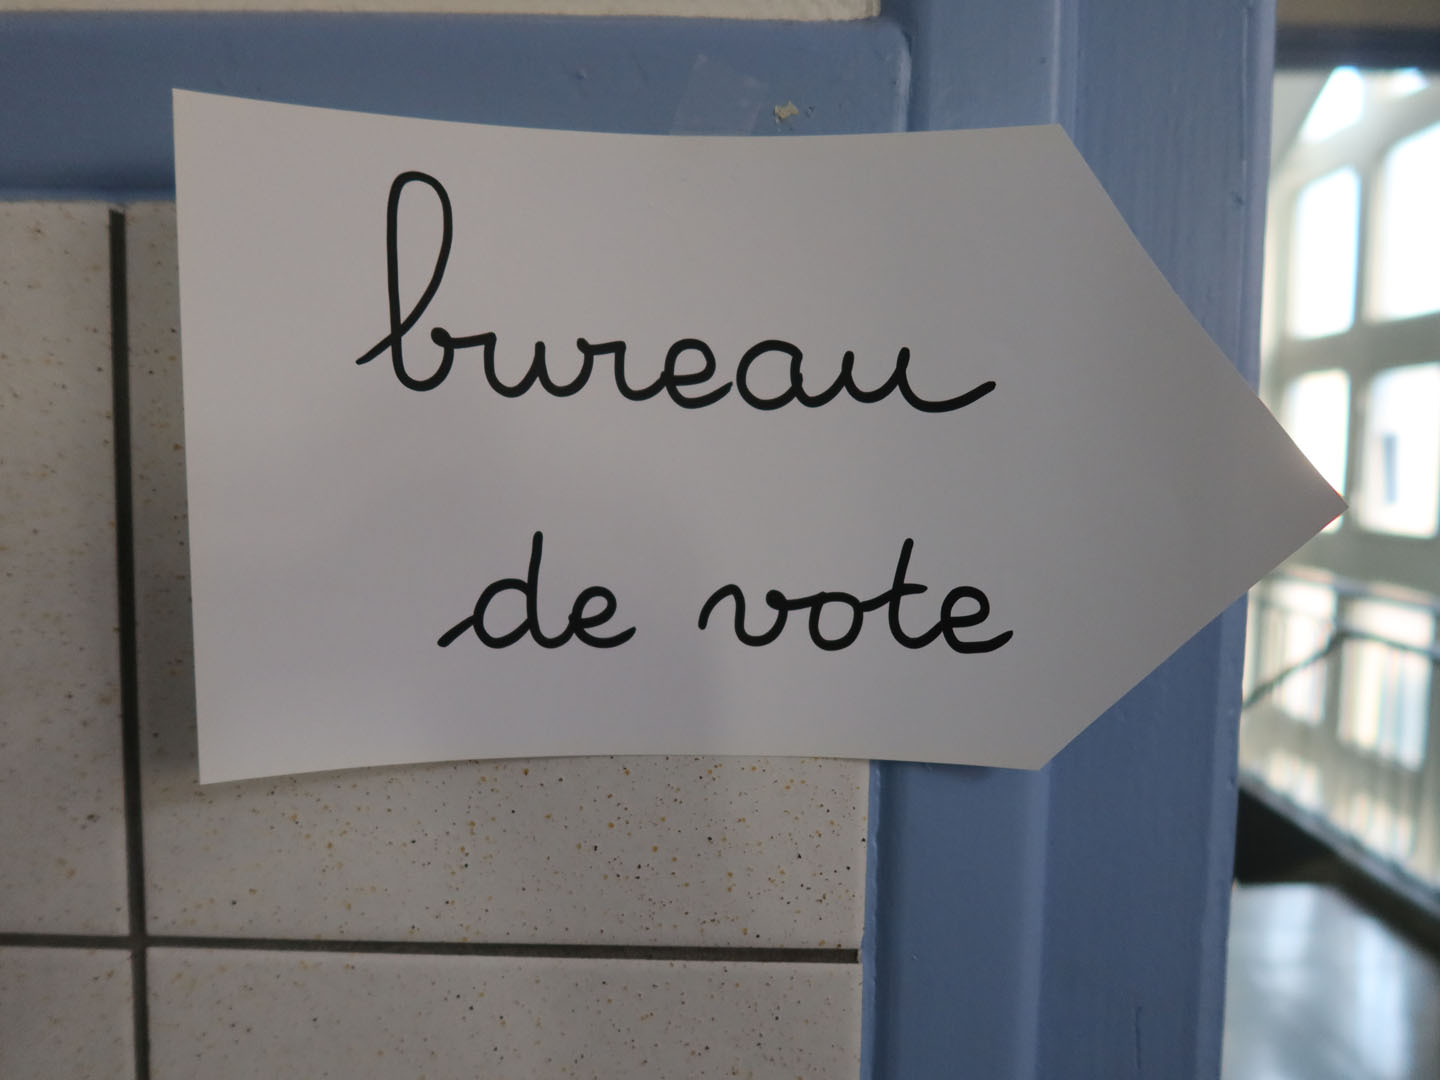 bureau
de vote